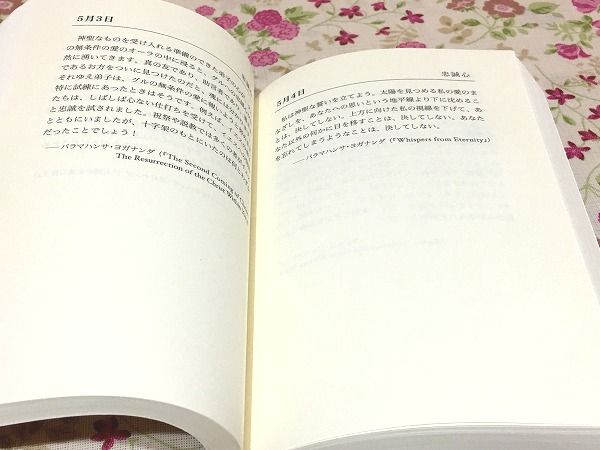 5月3日
神聖なものを受け入れる準備のできた弟子の
の無条件の愛のオーラの中に浸ると、グル
然に湧いてきます。真の友であり、助言者
であるお方をついに見つけたのだと、
それゆえ弟子は、グルの無条件の愛に
特に試練にあったときはそうです。例えば、イ
たちは、しばしば心ない仕打ちを受けて、
と忠誠を試されました。祝祭や説教ではあ
とともにいましたが、十字架のもとにいたのは
だったことでしょう！
——パラマハンサ・ヨガナンダ（『The Second Coming of
The Resurrection of the Christ Within
忠誠心
5月4日
私は神聖な誓いを立てよう。太陽を見つめる私の愛のま
なざしを、あなたへの思いという地平線より下に沈めるこ
とは、決してしない。上方に向けた私の視線を下げて、あ
なた以外の何かに目を移すことは、決してしない。あなた
を忘れてしまうようなことは、決してしない。
——パラマハンサ・ヨガナンダ（『Whispers from Eternity』）